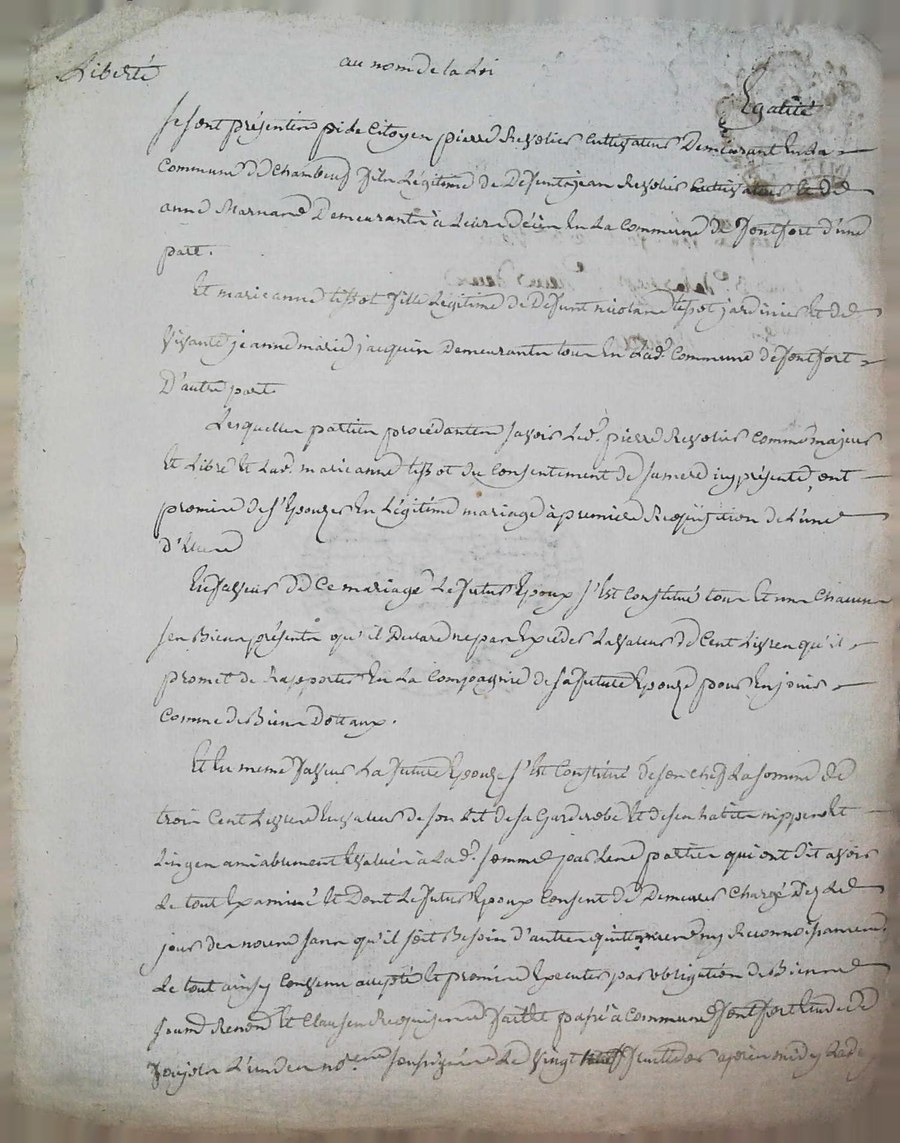 Liberté
au nom de la Loi
Egalité
se sont présentés pierre Revolier Cultivateur Demeurant En la
Commune de Chambeuf fils Légitime de Defunt jean Revolier Cultivateur Et de
anne Marnand Demeurante à Leur décès En La Commune de fontfort d'une
part.
Et marie anne tissot fille Légitime de Defunt nicolas tissot jardinier Et de
Vivante jeanne marie jacquin Demeurante tous En Lad. Commune de fontfort
D'autre part
Lesquelles parties procédantes savoir Led. pierre Revolier Comme majeur
Et Libre Et Lad. marie anne tissot du Consentement de sa mere icy présente, ont
promis de s'Epouser En Légitime mariage à premiere Requisition de L'une
d'
En faveur de Ce mariage Le futur Epoux s'Est Constitué tous Et un Chacun
ses Biens présents qu'il Declare ne pas Exceder La valeur de Cent Livres qu'il
promet de Rapporter En La Compagnie de sa future Epouse pour En jouir
Comme de Biens Dottaux.
Et En meme faveur La future Epouse s'Est Constitué de son Chef La somme de
trois Cent Livres En valeur de son Lit de sa Garderobe Et de ses habits nippes Et
Linges amiablement Evalués à Lad. somme par Les parties qui ont dit avoir
Le tout Examiné Et Dont Le futur Epoux Consent de Demeurer Chargé Dez Le
jour des noces sans qu'il soit Besoin d'autres quittances ny Reconnoissances.
Le tout ainsy Convenu accepté Et promis Executer par obligation de Biens
soumis Renon. Et Clauses Requises fait Et passé à Commune fontfort Etude de
L'un des no.res soussignés Le Vingt après midy